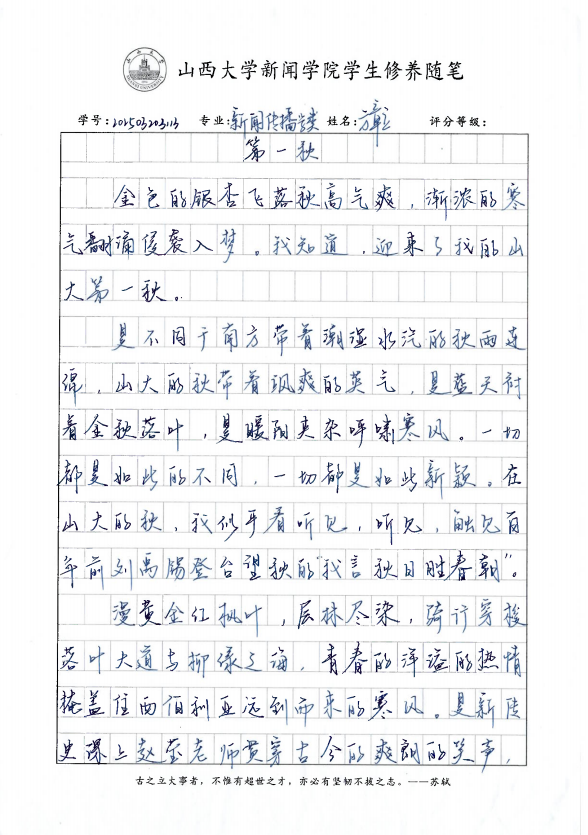 山西大学新闻学院学生修养随笔
学号：202503203113 专业：新闻传播学类 姓名： 评分等级：
第一秋
金色的银杏飞落秋高气爽，渐浓的寒
气翻涌侵袭入梦。我知道，迎来了我的山
大第一秋。
是不同于南方带着潮湿水汽的秋雨连
绵，山大的秋带着飒爽的英气，是蓝天衬
着金秋落叶，是暖阳夹杂呼啸寒风。一切
都是如此的不同，一切都是如此新颖。在
山大的秋，我似乎看听见，听见，触见百
年前刘禹锡登台望秋的“我言秋日胜春朝”。
漫黄金红枫叶，层林尽染，骑行穿梭
落叶大道与柳绿之海，青春的洋溢的热情
掩盖住西伯利亚远到而来的寒风。是新传
史课上赵莹老师贯穿古今的爽朗的笑声，
古之立大事者，不惟有超世之才，亦必有坚韧不拔之志。——苏轼